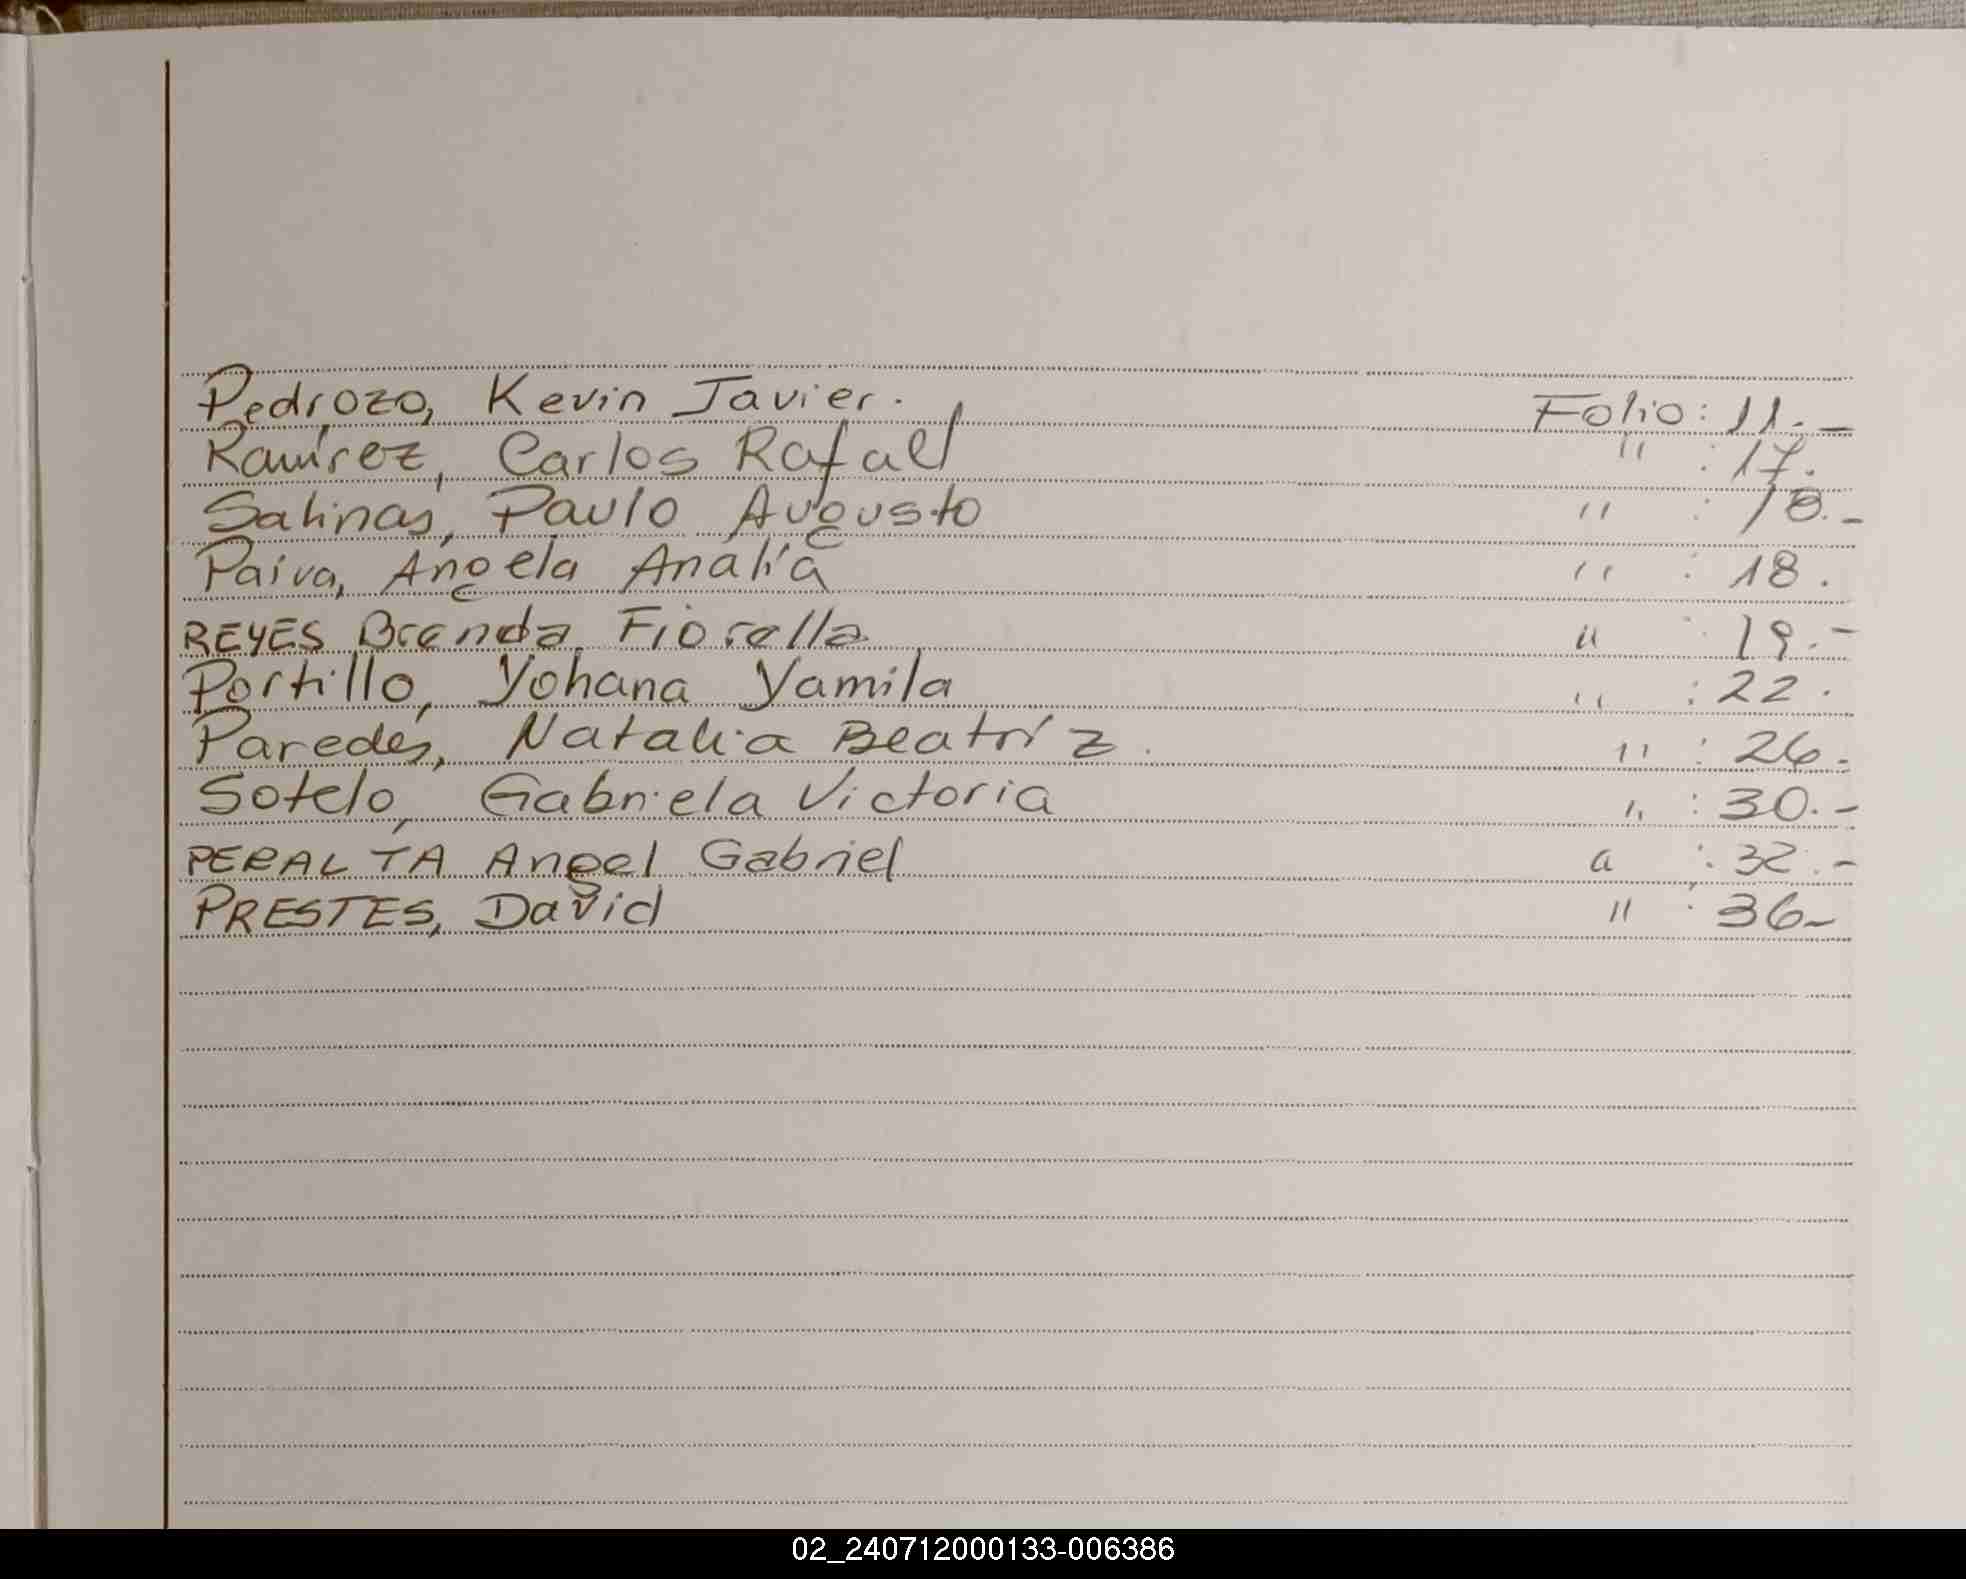 Pedrozo, Kevin Javier. Folio: 11.-
Ramírez, Carlos Rafael " : 17.
Salinas, Paulo Augusto " : 18.-
Paiva, Angela Analía " : 18.
REYES Brenda Fiorella " : 19.-
Portillo, Yohana Yamila " : 22.
Paredes, Natalia Beatríz. " : 26.-
Sotelo, Gabriela Victoria " : 30.-
PERALTA Angel Gabriel " : 32.-
PRESTES, David " : 36-
02_240712000133-006386